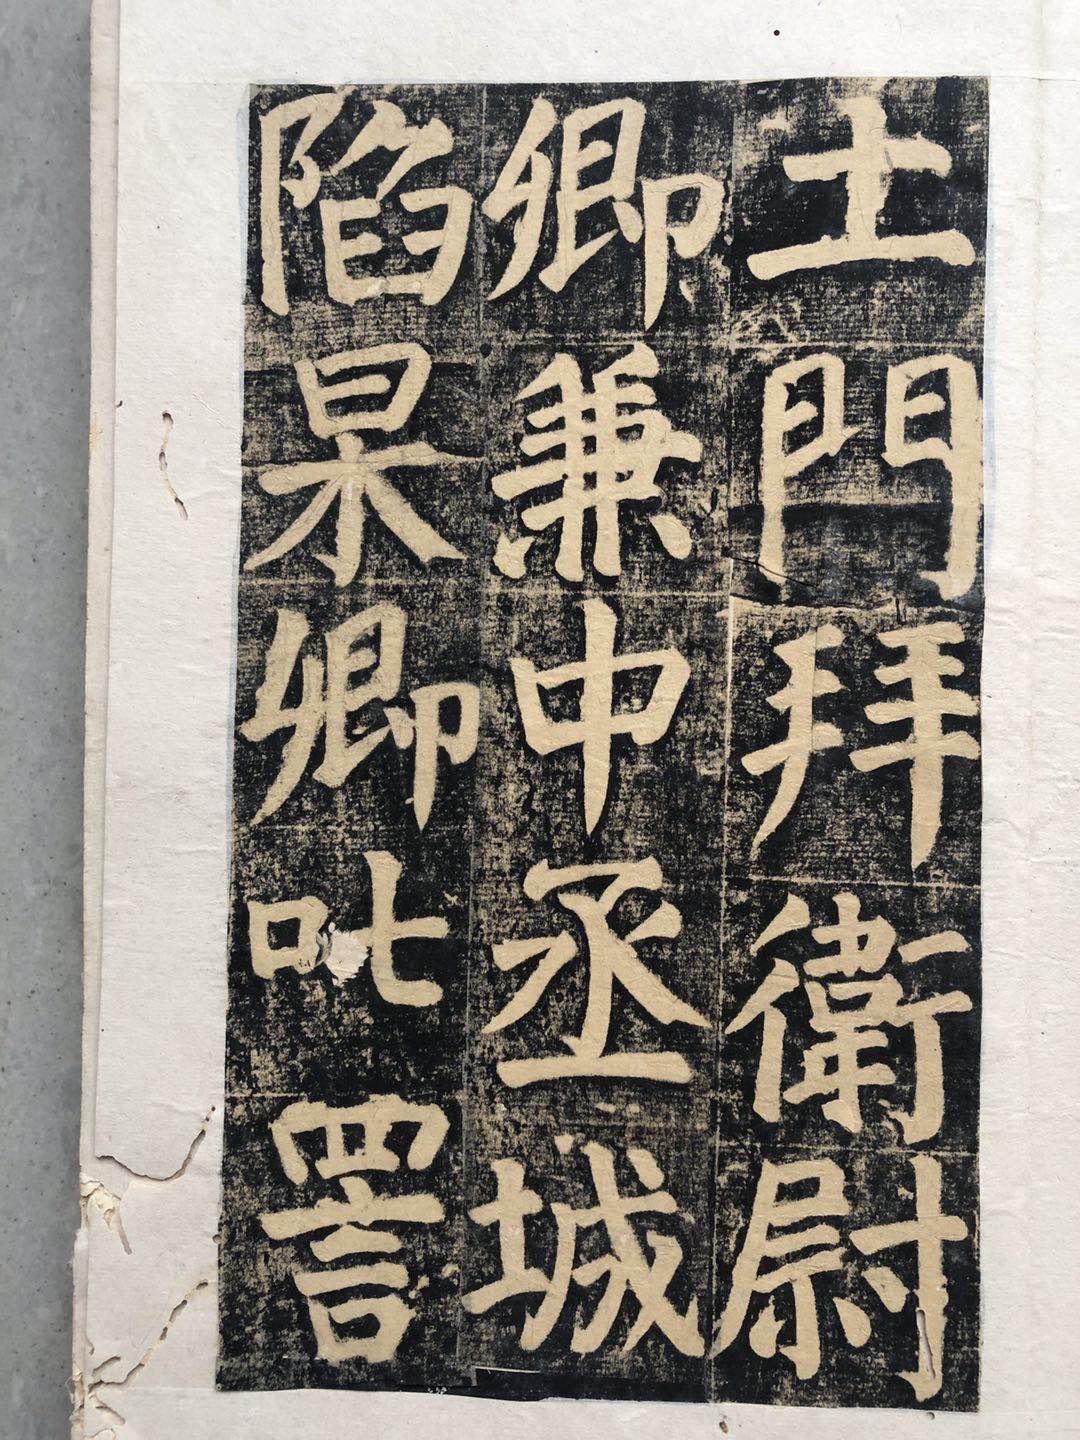 土門拜衛尉
卿兼中丞城
陷杲卿叱詈